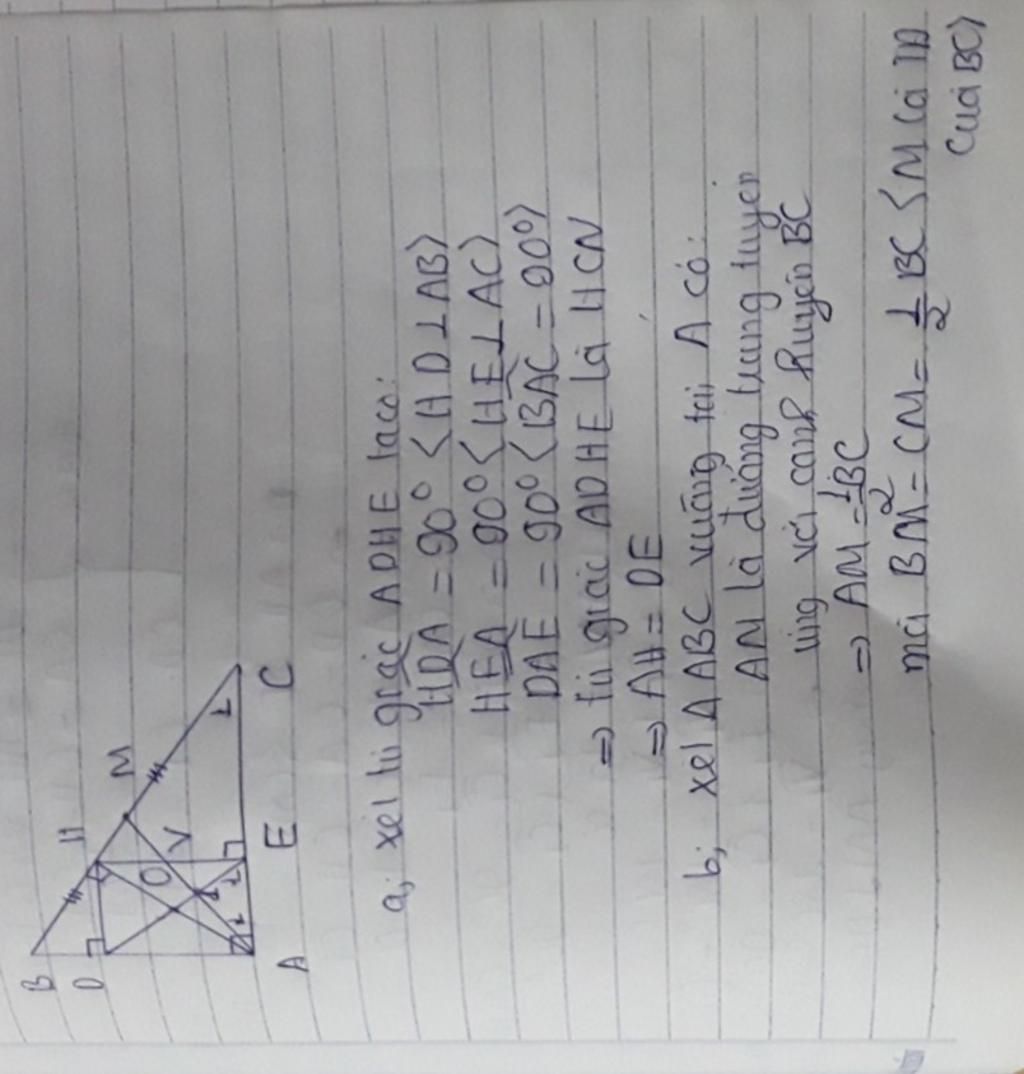 B
D
H
M
O
V
A
E
C
a; xét tứ giác ADHE taco:
HDA = 90° <HD⊥AB>
HEA = 90° <HE⊥AC>
DAE = 90° <BAC = 90°>
=> tứ giác ADHE là HCN
=> AH = DE
b; xét ΔABC vuông tại A có:
AM là đường trung tuyến
ứng với cạnh huyền BC
=> AM = 1/2 BC
mà BM = CM = 1/2 BC <M là TĐ
của BC>